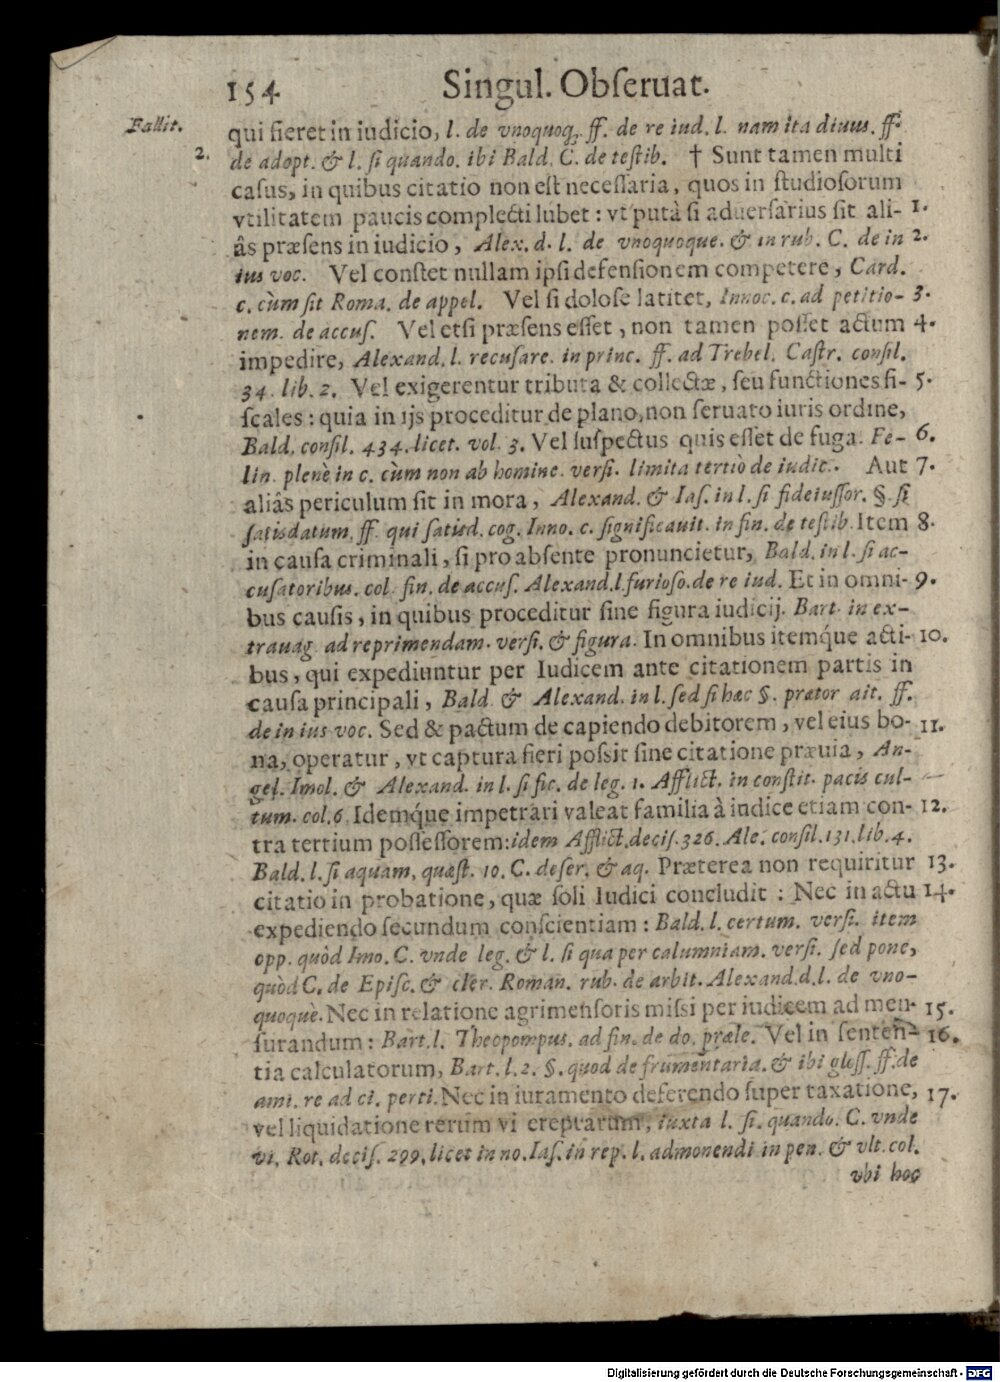 154 Singul. Obſeruat.
Fallit. qui fieret in iudicio, l. de vnoquoq. ff. de re iud. l. nam ita diuus. ff.
2. de adopt. & l. ſi quando. ibi Bald. C. de teſtib. † Sunt tamen multi
caſus, in quibus citatio non eſt neceſſaria, quos in ſtudioſorum
vtilitatem paucis complecti lubet : vt putà ſi aduerſarius ſit ali- 1.
âs præſens in iudicio, Alex. d. l. de vnoquoque. & in rub. C. de in 2.
ius voc. Vel conſtet nullam ipſi defenſionem competere, Card.
c. cùm ſit Roma. de appel. Vel ſi doloſe latitet, Innoc. c. ad petitio- 3.
nem. de accuſ. Vel etſi præſens eſſet, non tamen poſſet actum 4.
impedire, Alexand. l. recuſare. in princ. ff. ad Trebel. Caſtr. conſil.
34. lib. 2. Vel exigerentur tributa & collectæ, ſeu functiones fi- 5.
ſcales : quia in ijs proceditur de plano, non ſeruato iuris ordine,
Bald. conſil. 434. licet. vol. 3. Vel ſuſpectus quis eſſet de fuga. Fe- 6.
lin. plenè in c. cùm non ab homine. verſi. limita tertiò de iudic. Aut 7.
aliâs periculum ſit in mora, Alexand. & Iaſ. in l. ſi fideiuſſor. §. ſi
ſatisdatum. ff. qui ſatisd. cog. Inno. c. ſignificauit. in fin. de teſtib. Item 8.
in cauſa criminali, ſi pro abſente pronuncietur, Bald. in l. ſi ac-
cuſatoribus. col. fin. de accuſ. Alexand. l. furioſo. de re iud. Et in omni- 9.
bus cauſis, in quibus proceditur ſine figura iudicij. Bart. in ex-
trauag. ad reprimendam. verſi. & figura. In omnibus itemq́ue acti- 10.
bus, qui expediuntur per Iudicem ante citationem partis in
cauſa principali, Bald. & Alexand. in l. ſed ſi hac §. prætor ait. ff.
de in ius voc. Sed & pactum de capiendo debitorem, vel eius bo- 11.
na, operatur, vt captura fieri poſſit ſine citatione præuia, An-
gel. Imol. & Alexand. in l. ſi ſic. de leg. 1. Afflict. in conſtit. pacis cul-
tum. col. 6 Idemq́ue impetrari valeat familia à iudice etiam con- 12.
tra tertium poſſeſſorem: idem Afflict. deciſ. 326. Ale. conſil. 131. lib. 4.
Bald. l. ſi aquam, quæſt. 10. C. de ſer. & aq. Præterea non requiritur 13.
citatio in probatione, quæ ſoli Iudici concludit : Nec in actu 14.
expediendo ſecundum conſcientiam : Bald. l. certum. verſi. item
opp. quòd Imo. C. vnde leg. & l. ſi qua per calumniam. verſi. ſed pone,
quòd C. de Epiſc. & cler. Roman. rub. de arbit. Alexand. d. l. de vno-
quoquè. Nec in relatione agrimenſoris miſſi per iudicem ad men- 15.
ſurandum : Bart. l. Theopompus. ad fin. de do. præle. Vel in ſenten- 16.
tia calculatorum, Bart. l. 2. §. quod de frumentaria. & ibi gloſſ. ff. de
ami. re ad ci. perti. Nec in iuramento deferendo ſuper taxatione, 17.
vel liquidatione rerum vi ereptarum, iuxta l. ſi. quando. C. vnde
vi. Rot. deciſ. 299. licet in no. Iaſ. in rep. l. admonendi in pen. & vlt. col.
vbi hoc
Digitalisierung gefördert durch die Deutsche Forschungsgemeinschaft - DFG